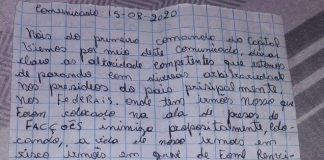 Comunicado 15-08-2020
Nois do primeiro comando do Capital
Viemos por meio deste Comunicado, deixar
claro as altoridade competentes que estamos
deparando com diversas arbitrariedade
nos presidios do pais principalmente
Nos Federais. onde tem irmãos nosso que
foram colocado na ala de presos de
FACÇÕES inimiga propositalmente colo-
cando, a vida de nosso irmãos em
risco irmãos em greve de fome